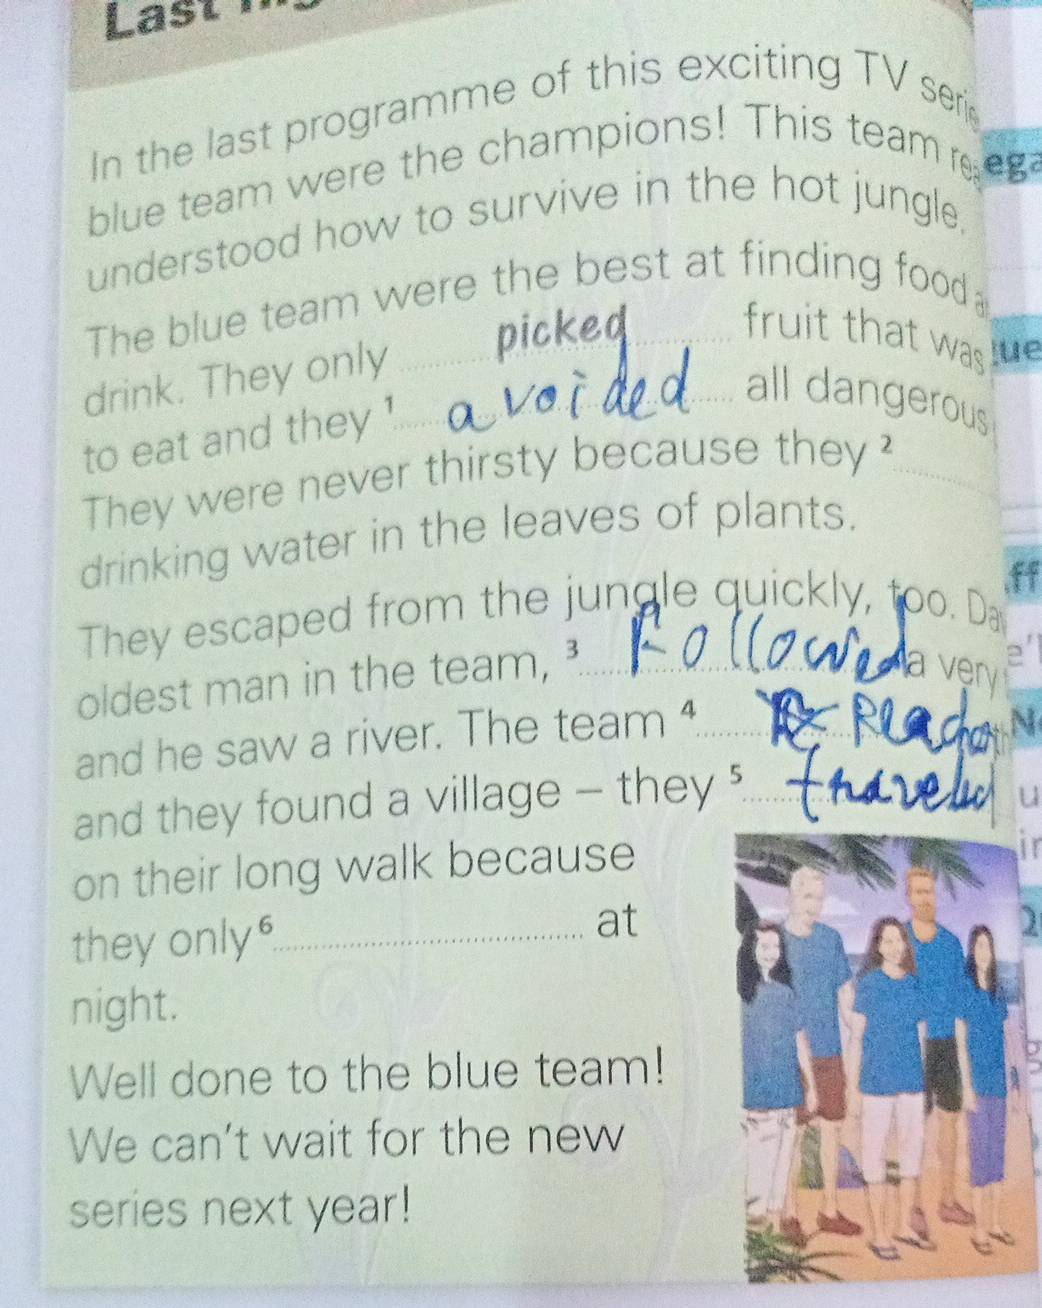 Last
In the last programme of this exciting TV
blue team were the champions! This team
understood how to survive in the hot jungle.
The blue team were the best at finding food
drink. They only picked fruit that was
to eat and they ¹ avoided all dangerous
They were never thirsty because they ²
drinking water in the leaves of plants.
They escaped from the jungle quickly, too.
oldest man in the team, ³ Followed a very
and he saw a river. The team ⁴
and they found a village – they ⁵
on their long walk because
they only ⁶ at
night.
Well done to the blue team!
We can't wait for the new
series next year!